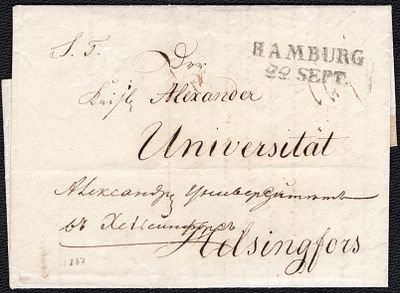 S. T.
HAMBURG
22 SEPT.
Der
Kaisl. Alexander
Universität
Александр. Университетъ
въ Хельсингфорсъ
Helsingfors
1837